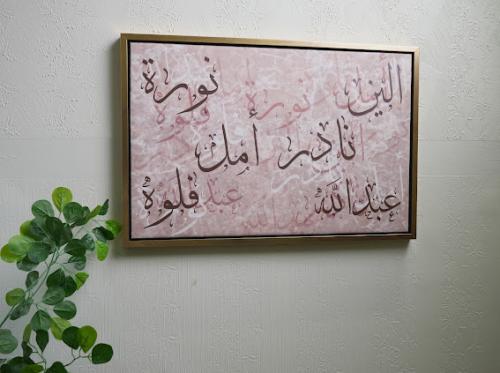 الين نورة
نادر أمل
عبدالله فلوه